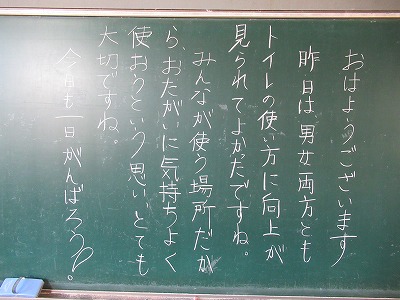 おはようございます
昨日は男女両方とも
トイレの使い方に向上が
見られてよかったですね。
みんなが使う場所だか
ら、おたがいに気持ちよく
使おうという思いとても
大切ですね。
今日も一日がんばろう。